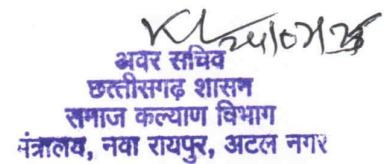 अवर सचिव
छत्तीसगढ़ शासन
समाज कल्याण विभाग
मंत्रालय, नवा रायपुर, अटल नगर